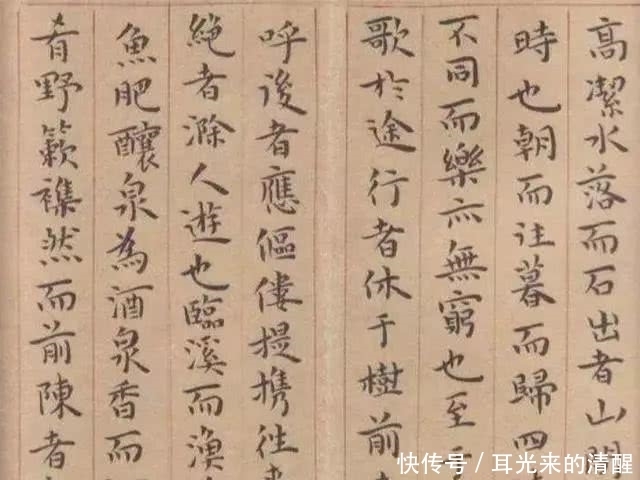 高潔水落而石出者山間
時也朝而往暮而歸四
不同而樂亦無窮也至于
歌於途行者休于樹前
呼後者應傴僂提携往來
絶者滁人遊也臨溪而漁
魚肥釀泉為酒泉香而
肴野蔌襍然而前陳者
快传号/耳光来的清醒